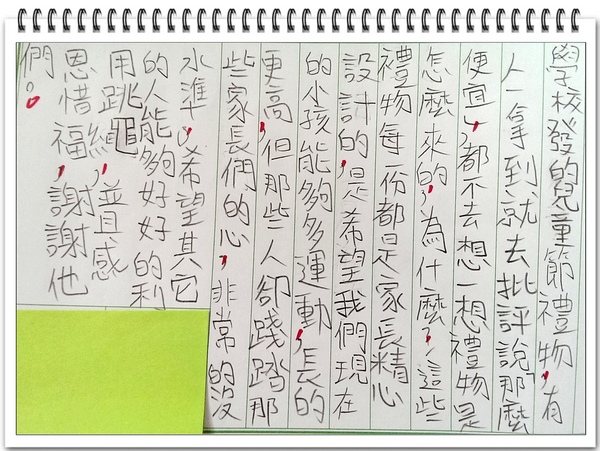 學校發的兒童節禮物,有
人一拿到就去批評說那麼
便宜,都不去想一想禮物是
怎麼來的,為什麼?這些
禮物每一份都是家長精心
設計的,是希望我們現在
的小孩能夠多多運動,長的
更高,但那些人卻踐踏那
些家長們的心,非常的沒
水準。希望其它
的人能夠好好的利
用跳繩,普感
恩惜福,謝謝他
們。